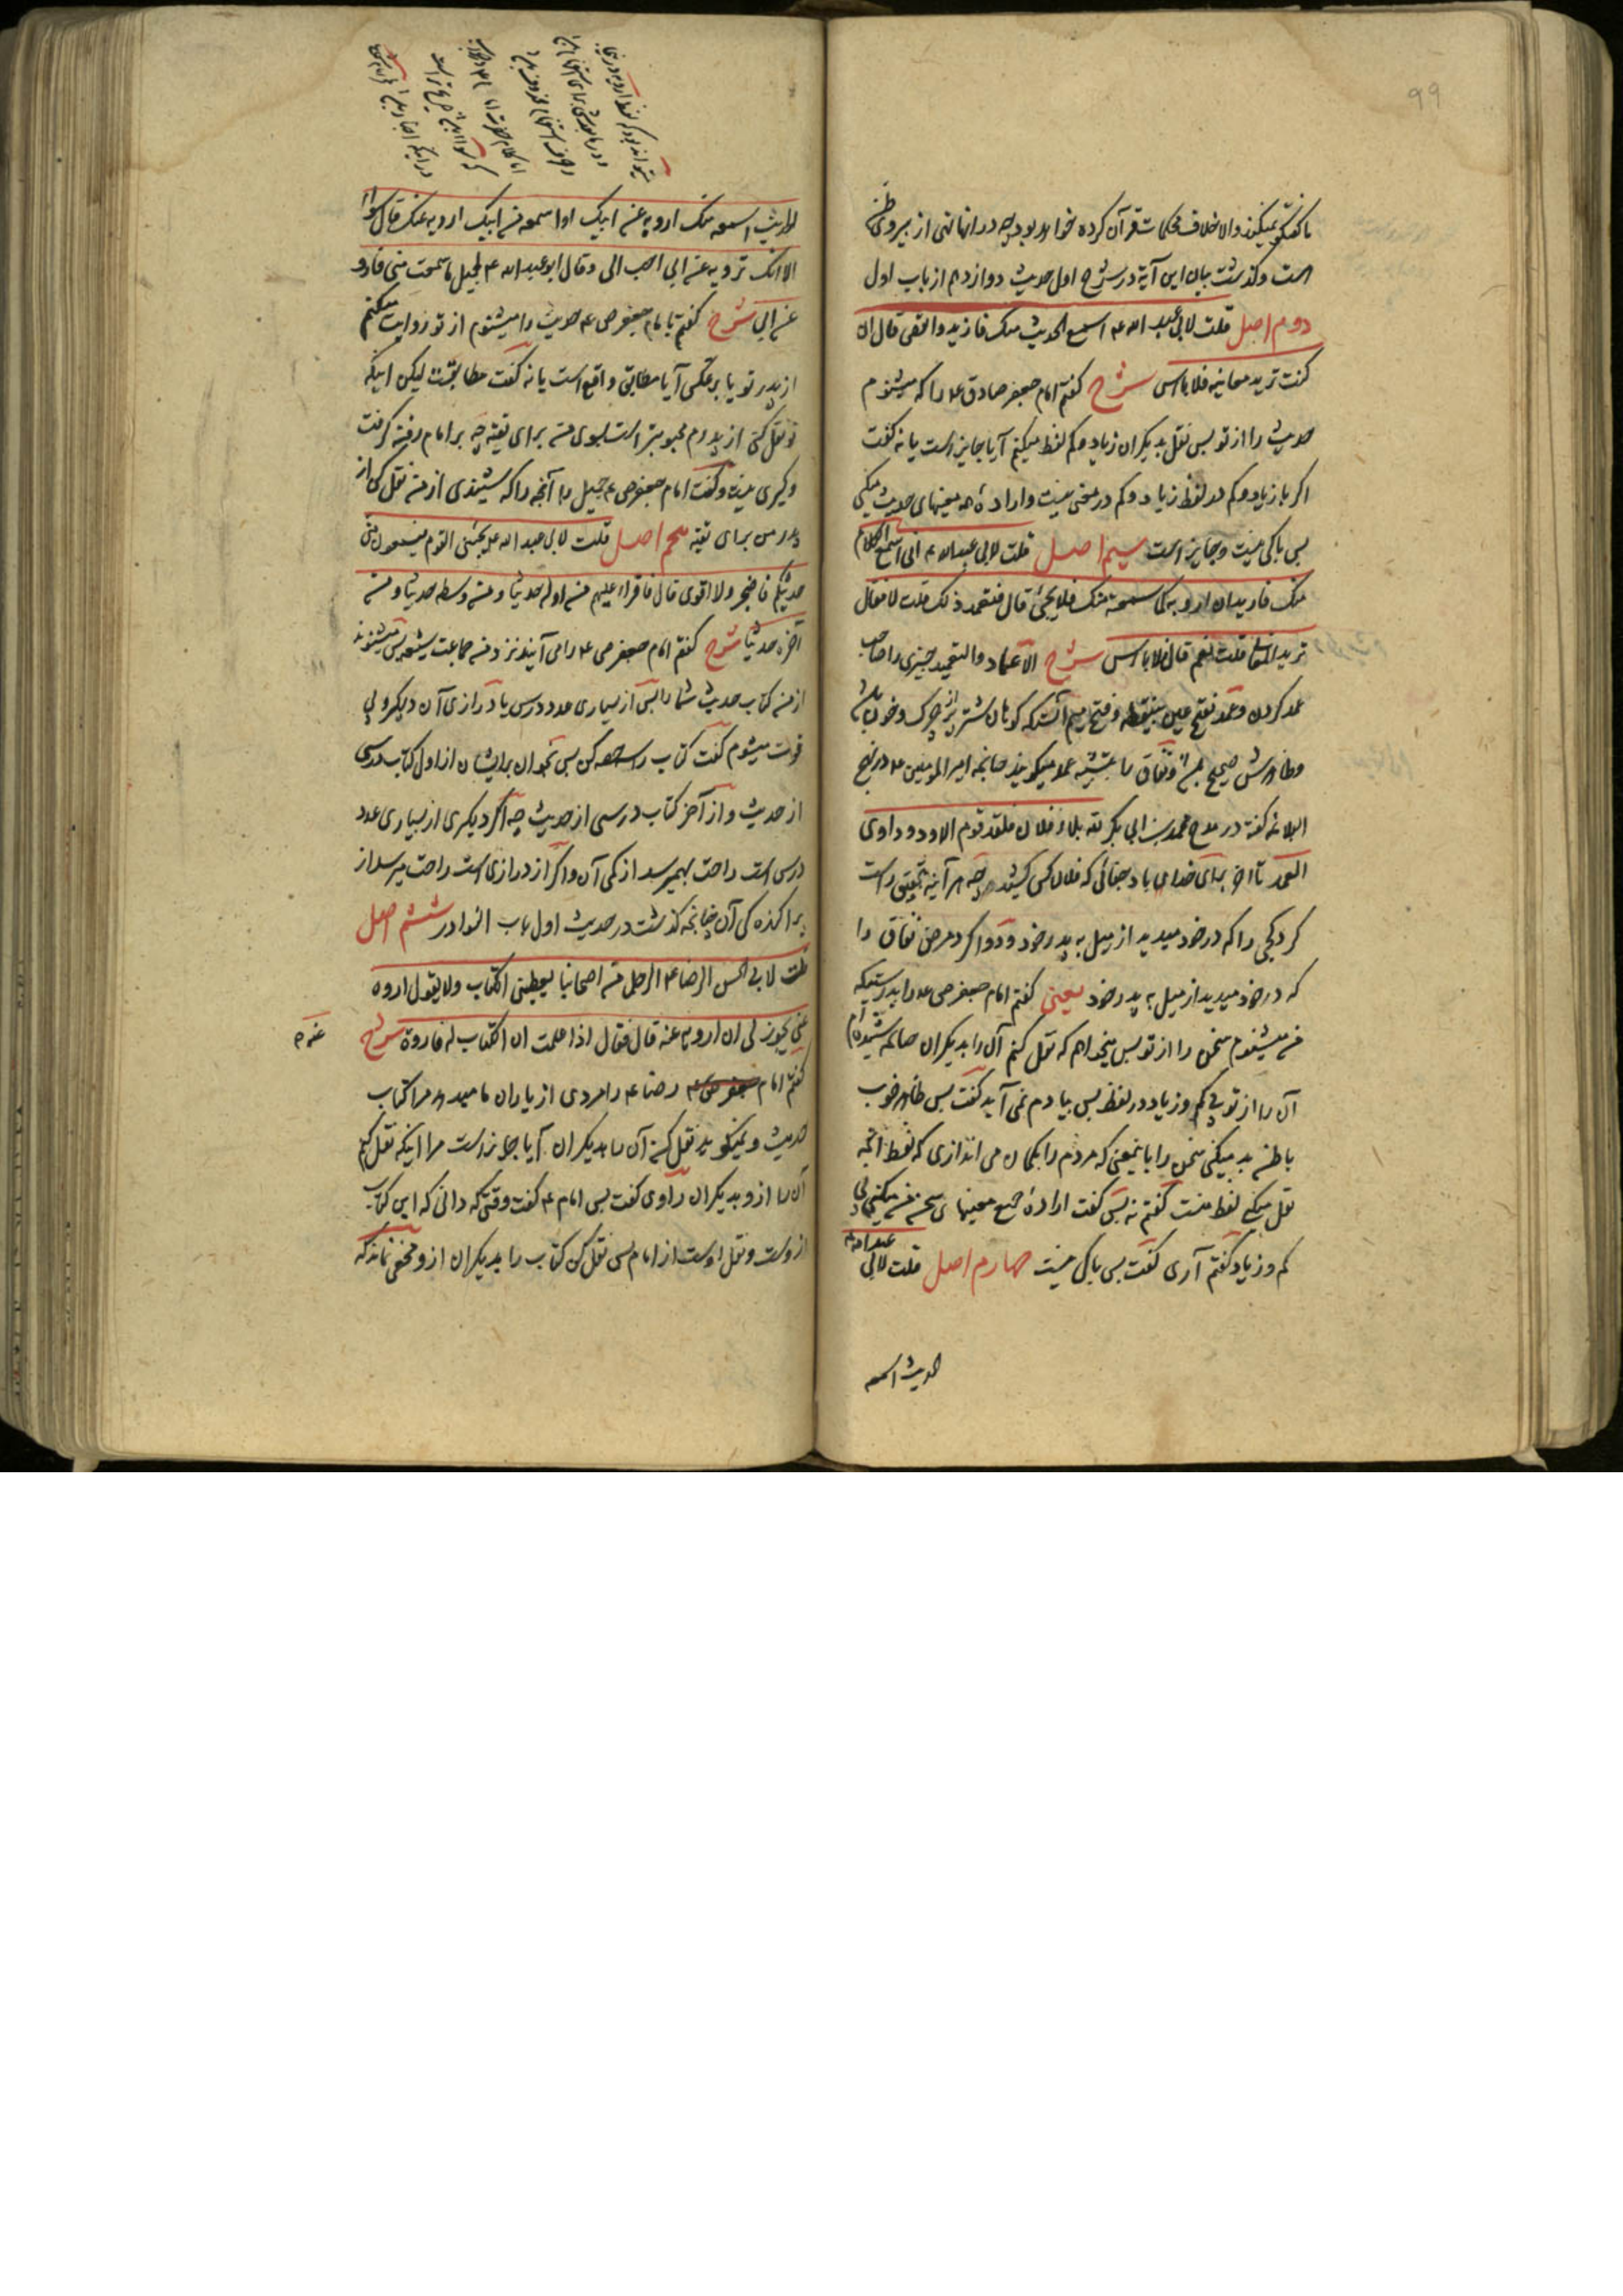 99
ناگفتگو نمیکنند والا خلاف محکمات قرآن کرده خواهد بود چه در انها نهی از پیروی ظن
است وگذشت بیان این آیة در شرح اول حدیث دوازدهم از باب اول
دوم اصل قلت لابی عبد الله ع اسمع الحدیث منک فازید وانقص قال ان
کنت ترید معانیه فلا باس شرح گفتم امام جعفر صادق ع را که میشنوم
حدیث را از تو پس نقل بدیگران زیاد وکم لفظ میکنم آیا جایز است یا نه گفت
اگر با زیاد وکم در لفظ زیاد وکم در معنی نیست واراده همه معنیهای حدیث میکنی
پس باکی نیست وجایز است سیم اصل قلت لابی عبد الله ع انی اسمع الکلام
منک فارید ان ارویه کما سمعته منک فلا یجیء قال فتتعمد ذلک قلت لا فقال
ترید المعانی قلت نعم قال فلا باس شرح الاعتماد والتعمد چیزی را صاحب
عمد کردن وعمد بفتح عین بینقطه وفتح میم آنست که کوهان شتر پر از چرک وخون باشد
وظاهرش صحیح باشد ونفاق را بتشبیه عمد میگویند چنانچه امیر المومنین ع در نهج
البلاغه گفته در مدح محمد بن ابی بکر لله بلاد فلان فلقد قوم الاود وداوی
العمد تا اخر برای خدای باد جفائی که فلان کس کشیده چه هر آینه بتحقیق راست
کرد کجی را که در خود میدید از میل به پدر خود ودوا کرد مرض نفاق را
که در خود میدید از میل به پدر خود یعنی گفتم امام جعفر ص ع را بدرستیکه
من میشنوم سخن را از تو پس میخواهم که نقل کنم آن را بدیگران چنانکه شنیده ام
آن را از تو بی کم وزیاد در لفظ پس بیادم نمی آید گفت پس ظاهر خوب
باطن بد میکنی سخن را باینمعنی که مردم را بگمان می اندازی که لفظ آنچه
نقل میکنی لفظ منست گفتم نه پس گفت اراده جمیع معنیهای سخن من میکنی بی
کم وزیاد گفتم آری گفت پس باکی نیست چهارم اصل قلت لابی عبد الله ع
الحدیث اسمعه
الحدیث اسمعه منک ارویه عن ابیک او اسمعه من ابیک ارویه عنک قال سواء
الا انک ترویه عن ابی احب الی وقال ابو عبد الله ع لجمیل ما سمعت منی فارو
عن ابی شرح گفتم با امام جعفر ص ع حدیث را میشنوم از تو روایت میکنم
از پدر تو یا بر عکس آیا مطابق واقع است یا نه گفت مطابقست لیکن اینکه
تو نقل کنی از پدرم محبوبتر است بسوی من برای تقیه چه بر امام رفته گرفت
وگیری نیست وگفت امام جعفر ص ع جمیل را آنچه را که شنیدی از من نقل کن از
پدر من برای تقیه پنجم اصل قلت لابی عبد الله ع یجیئنی القوم فیستمعون منی
حدیثکم فاضجر ولا اقوی قال فاقرا علیهم من اوله حدیثا ومن وسطه حدیثا ومن
آخره حدیثا شرح گفتم امام جعفر ص ع را می آیند نزد من جماعت شیعه پس میشنوند
از من کتاب حدیث شما را پس از بسیاری عدد درس یا درازی آن دلگیر وبی
قوت میشوم گفت کتاب را سه حصه کن پس بخوان بر ایشان از اول کتاب درسی
از حدیث واز آخر کتاب درسی از حدیث چه اگر دیگری از بسیاری عدد
درس است راحت بهم میرسد از کمی آن واگر از درازی است راحت میرسد از
پراکندگی آن چنانچه گذشت در حدیث اول باب النوادر ششم اصل
قلت لابی الحسن الرضا ع الرجل من اصحابنا یعطینی الکتاب ولا یقول اروه
عنی یجوز لی ان ارویه عنه قال فقال اذا علمت ان الکتاب له فاروه شرح
عنه م
گفتم امام جعفر ص ع رضا ع را مردی از یاران ما میدهد مرا کتاب
حدیث ونمیگوید نقل کن آن را بدیگران آیا جایز است مرا اینکه نقل کنم
آن را ازو بدیگران راوی گفت پس امام ع گفت وقتی که دانی که این کتاب
ازوست ونقل اوست از امام پس نقل کن کتاب را بدیگران ازو مخفی نماند که